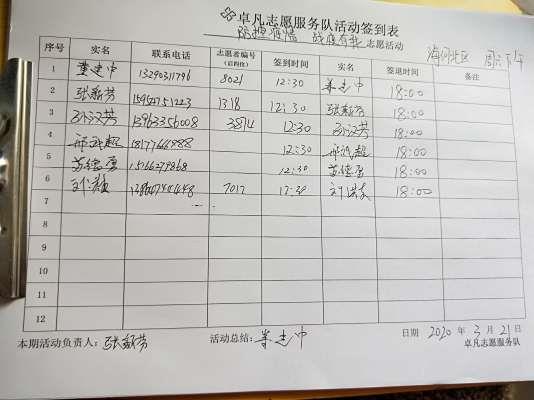 卓凡志愿服务队活动签到表
防控疫情 战疫有我 志愿活动
海河北区 周六下午
序号 实名 联系电话 志愿者编号(后四位) 签到时间 实名 签退时间 备注
1 董建中 13290311796 8021 12:30 董建中 18:00
2 张新芳 1318 12:30 张新芳 18:00
3 13963356008 3874 12:30 18:00
4 12:30 18:00
5 12:30 18:00
6 7017 12:30 18:00
7
8
9
10
11
12
本期活动负责人: 张新芳 活动总结: 董建中 日期 2020 年 3 月 21 日
卓凡志愿服务队